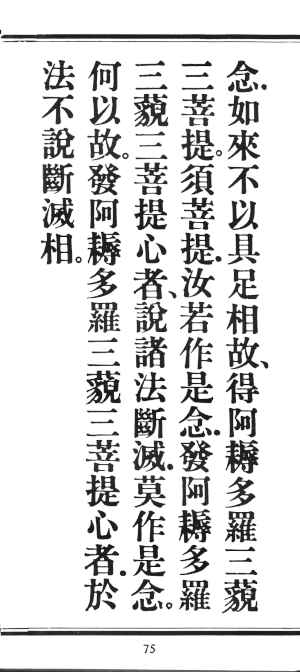 念．如來不以具足相故、得阿耨多羅三藐
三菩提。須菩提．汝若作是念．發阿耨多羅
三藐三菩提心者、說諸法斷滅．莫作是念。
何以故。發阿耨多羅三藐三菩提心者．於
法不說斷滅相。
75